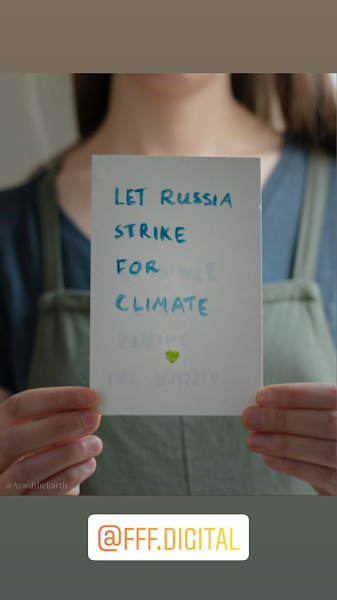 LET RUSSIA
STRIKE
FOR
CLIMATE
@AyaoftheEarth
@FFF.DIGITAL